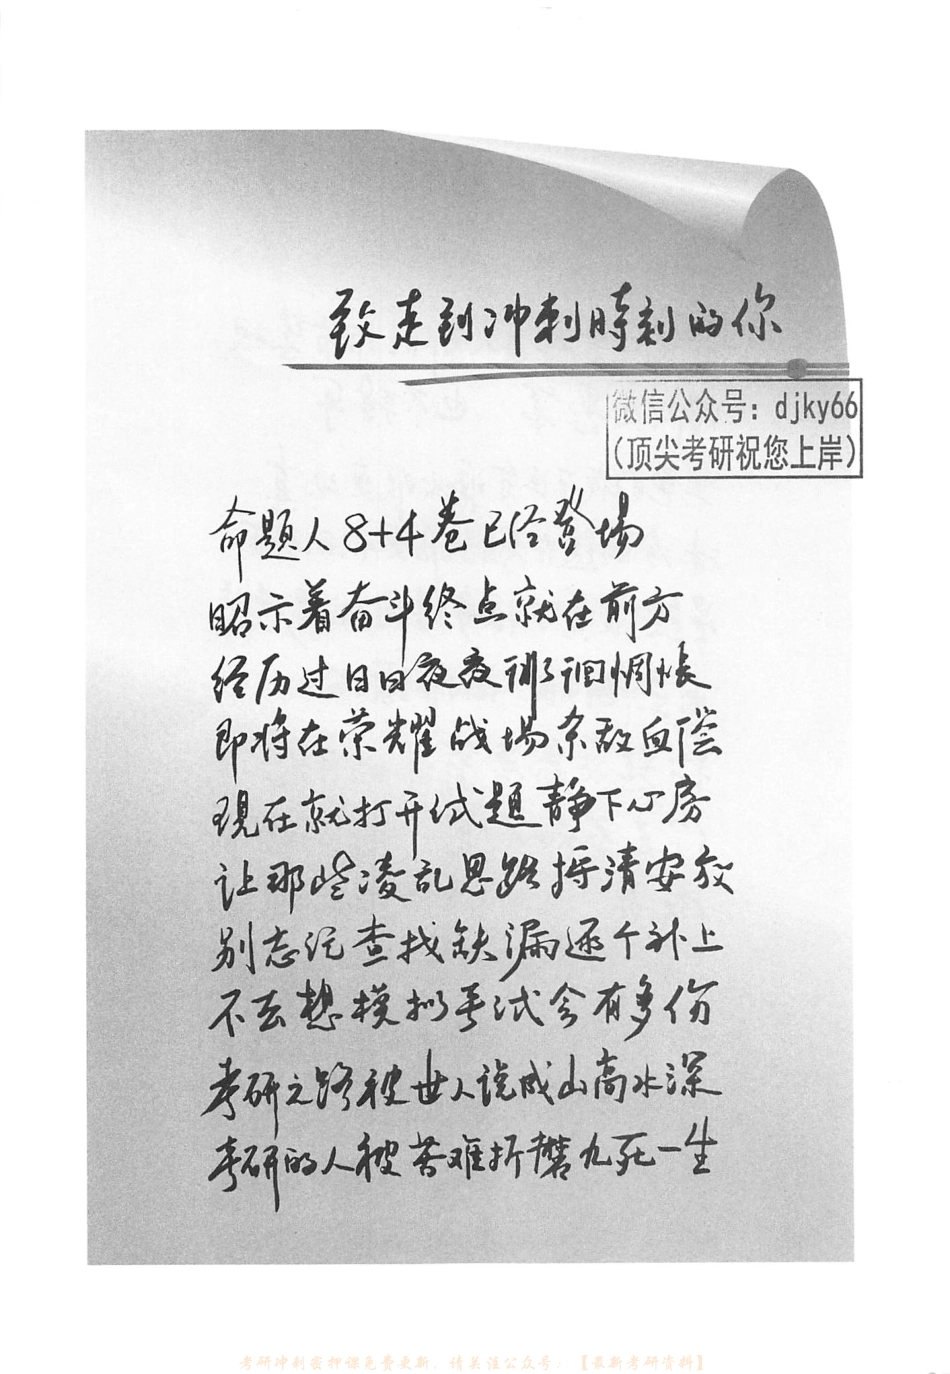 致走到冲刺時刻的你
微信公众号：djky66
（顶尖考研祝您上岸）
命题人8+4卷已经登场
昭示着奋斗终点就在前方
经历过日日夜夜那泪惆怅
即将在荣耀战场杀敌血偿
現在就打开试题静下心房
让那些凌乱思路捋清安放
别忘记查找缺漏逐个补上
不去想模拟考试会有多伤
考研之路被世人说成山高水深
考研的人被苦难折磨九死一生
考研冲刺密押课免费更新，请关注公众号：【最新考研资料】